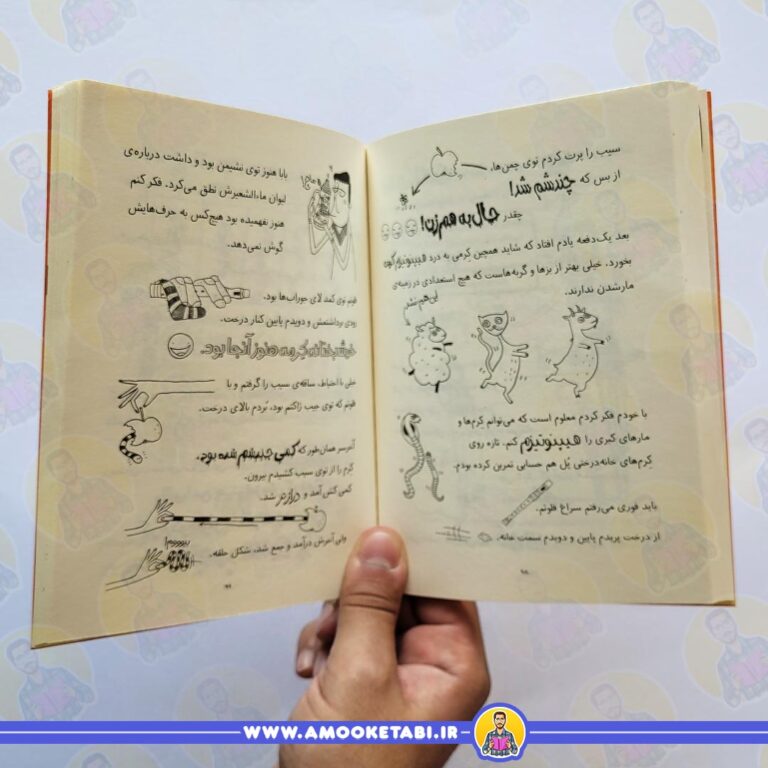 سیب را پرت کردم توی چمن‌ها،
از بس که چندشم شد!
چقدر حال به هم زن!
بعد یک‌دفعه یادم افتاد که شاید همچین کرمی به درد هیپنوتیزم کردن
بخورد. خیلی بهتر از بزها و گربه‌هاست که هیچ استعدادی در زمینه‌ی
مارشدن ندارند.
با خودم فکر کردم معلوم است که می‌توانم کرم‌ها و
مارهای کبری را هیپنوتیزم کنم. تازه روی
کرم‌های خانه‌درختی پُل هم حسابی تمرین کرده بودم.
باید فوری می‌رفتم سراغ فلوتم.
از درخت پریدم پایین و دویدم سمت خانه.
۹۸
بابا هنوز توی نشیمن بود و داشت درباره‌ی
لیوان ماءالشعیرش نطق می‌کرد. فکر کنم
هنوز نفهمیده بود هیچ‌کس به حرف‌هایش
گوش نمی‌دهد.
فلوتم توی کمد لای جوراب‌ها بود.
زودی برداشتمش و دویدم پایین کنار درخت.
خوشبختانه کرمه هنوز آنجا بود.
خیلی با احتیاط، ساقه‌ی سیب را گرفتم و با
فلوتم که توی جیب ژاکتم بود، بُردم بالای درخت.
آخرسر همان‌طور که کمی چندشم شده بود،
کرم را از توی سیب کشیدم بیرون.
کمی کش آمد و درازتر شد.
ولی آخرش درآمد و جمع شد، شکل حلقه.
۹۹
WWW.AMOOKETABI.IR